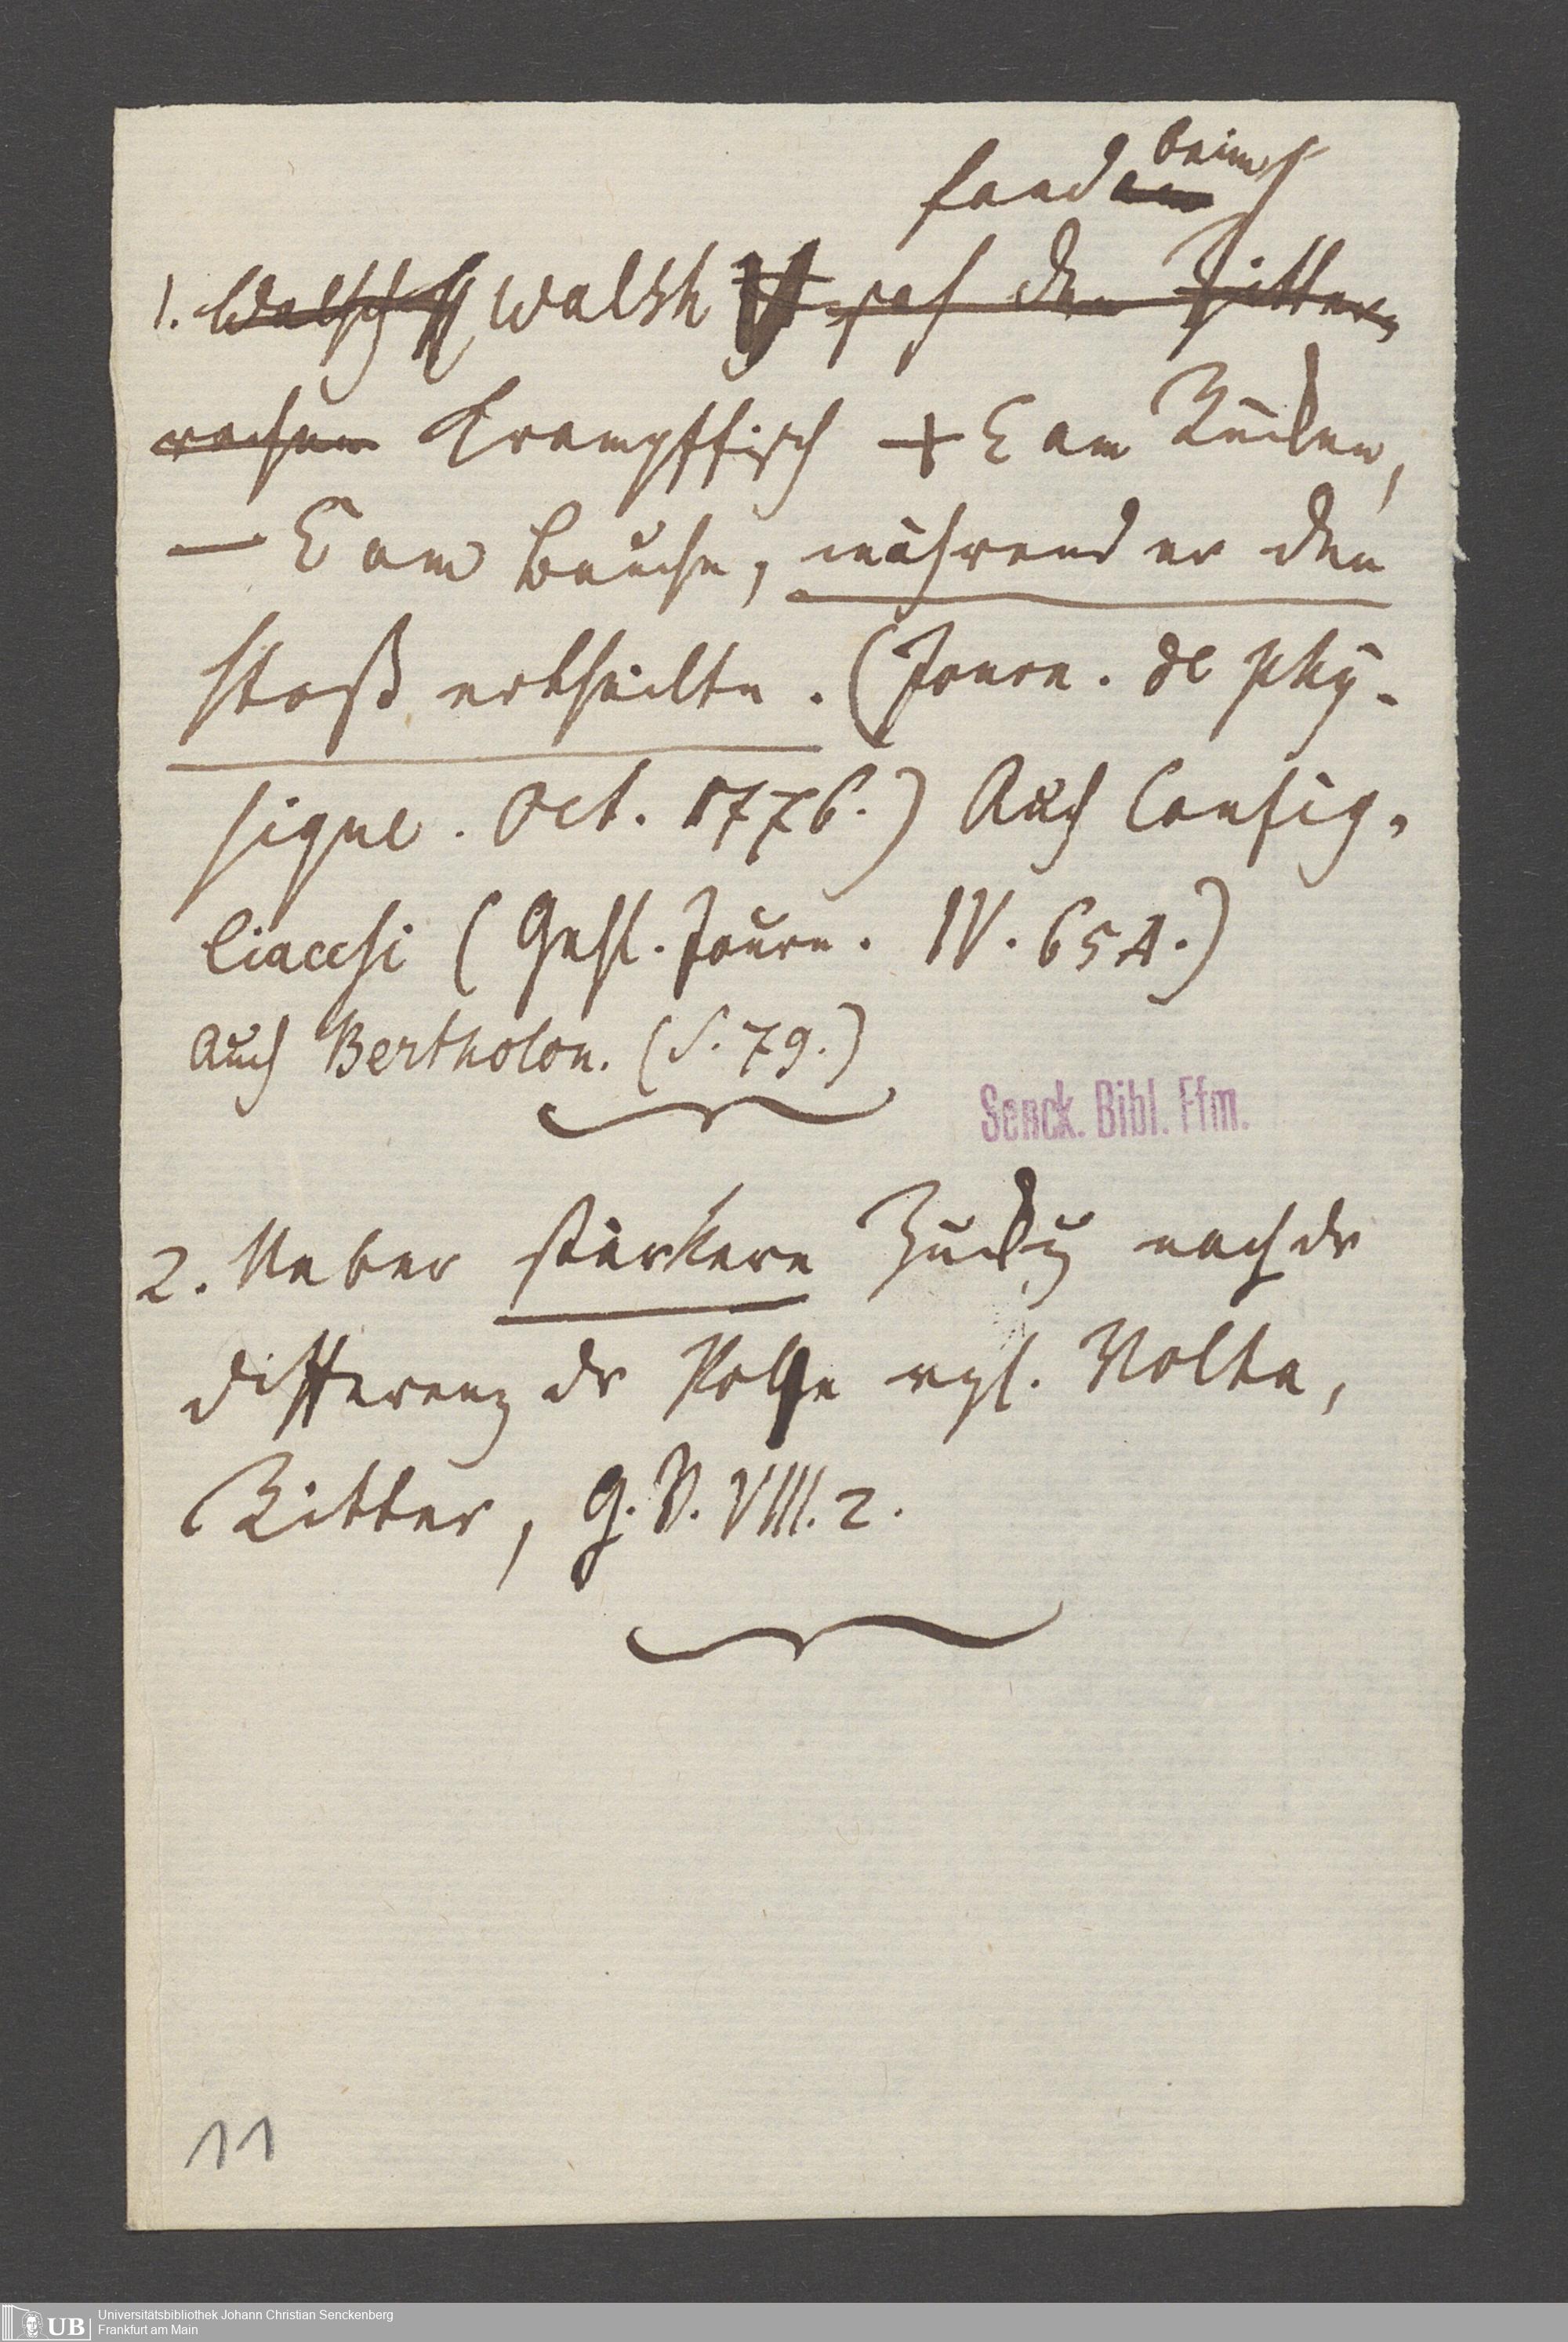 fand am beim
1. Walsch Walsh sah den Zitter-
rochen Krampffisch + E am Rücken,
— E am Bauche, während er den
Stoß ertheilte. (Journ. de Phy-
sique. Oct. 1776.) Auch Config-
liacchi (Gehl. Journ. IV. 654.)
Auch Bertholon. (S. 79.)
Senck. Bibl. Ffm.
2. Ueber stärkere Zuckg nach dr
Differenz dr Pole vgl. Volta,
Ritter, G. V. VIII. 2.
11
UB
Universitätsbibliothek Johann Christian Senckenberg
Frankfurt am Main